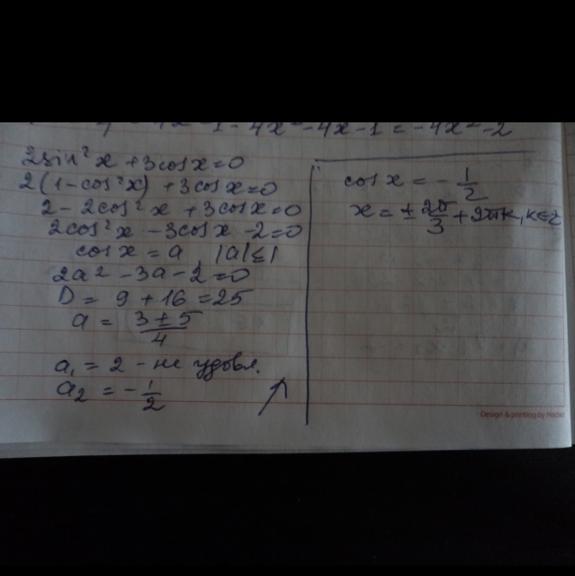 1 - 4x² - 4x - 1 = -4x² - 2
2sin²x + 3cosx = 0
2(1 - cos²x) + 3cosx = 0
2 - 2cos²x + 3cosx = 0
2cos²x - 3cosx - 2 = 0
cosx = a, |a| ≤ 1
2a² - 3a - 2 = 0
D = 9 + 16 = 25
a = (3 ± 5)/4
a₁ = 2 - не удовл.
a₂ = -1/2
cosx = -1/2
x = ± 2π/3 + 2πk, k ∈ z
Design & printing by